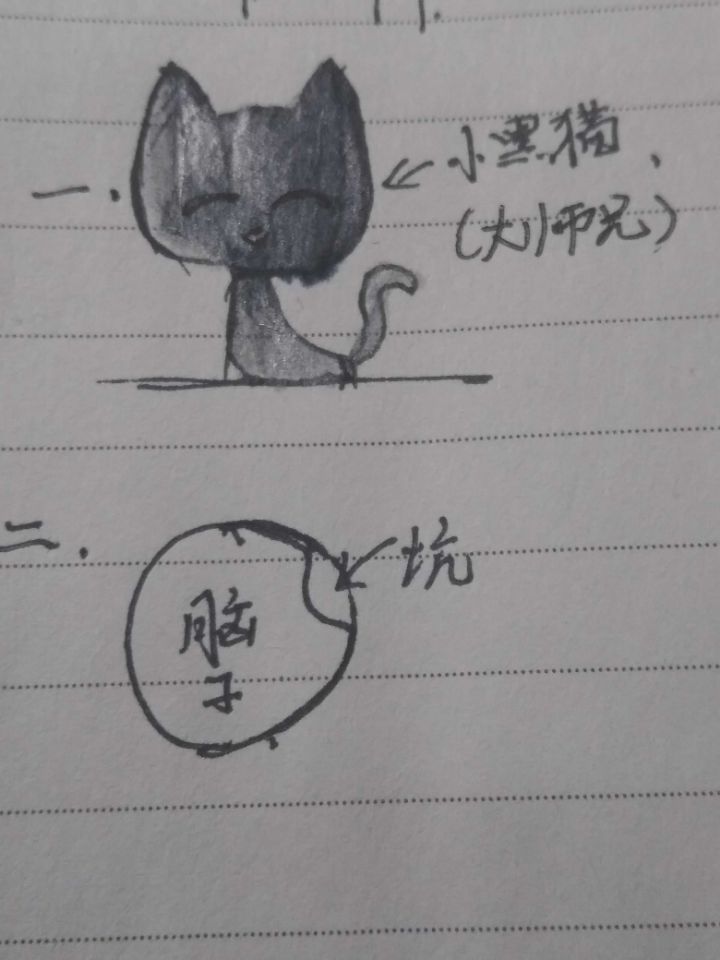 一.
小黑猫.
(大师兄)
二.
坑
脑
子